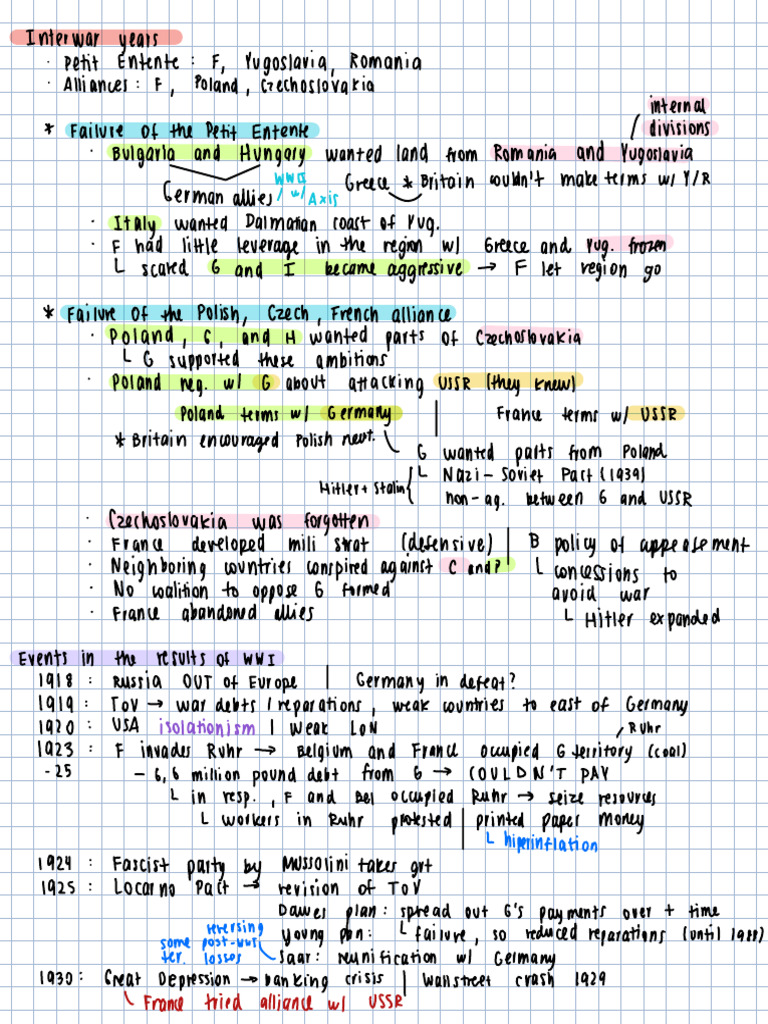 Interwar years
· Petit Entente : F, Yugoslavia, Romania
· Alliances : F, Poland, Czechoslovakia
internal
divisions
* Failure of the Petit Entente
· Bulgaria and Hungary wanted land from Romania and Yugoslavia
German allies WWI w/ Axis
Greece * Britain wouldn't make terms w/ Y/R
· Italy wanted Dalmatian coast of Yug.
· F had little leverage in the region w/ Greece and Yug. frozen
└ scared G and I became aggressive → F let region go
* Failure of the Polish, Czech, French alliance
· Poland, G, and H wanted parts of Czechoslovakia
└ G supported these ambitions
· Poland neg. w/ G about attacking USSR (they knew)
Poland terms w/ Germany | France terms w/ USSR
* Britain encouraged Polish neut.
G wanted parts from Poland
└ Nazi-Soviet Pact (1939)
Hitler + Stalin {
non-ag. between G and USSR
· Czechoslovakia was forgotten
· France developed mili strat (defensive)
· Neighboring countries conspired against C and P
· No coalition to oppose G formed
· France abandoned allies
B policy of appeasement
└ concessions to
avoid war
└ Hitler expanded
Events in the results of WWI
1918 : Russia OUT of Europe | Germany in defeat?
1919 : ToV → war debts / reparations, weak countries to east of Germany
1920 : USA isolationism | Weak LoN
Ruhr
1923 : F invades Ruhr → Belgium and France occupied G territory (coal)
-25 - 6,6 million pound debt from G → COULDN'T PAY
└ in resp., F and Bel occupied Ruhr → seize resources
└ workers in Ruhr protested | printed paper money
└ hiperinflation
1924 : Fascist party by Mussolini takes gvt
1925 : Locarno Pact → revision of ToV
Dawes plan : spread out G's payments over + time
Young plan : └ failure, so reduced reparations (until 1988)
Saar : reunification w/ Germany
reversing
some post-WWI
ter. losses
1930 : Great Depression → banking crisis | Wall street crash 1929
└ France tried alliance w/ USSR